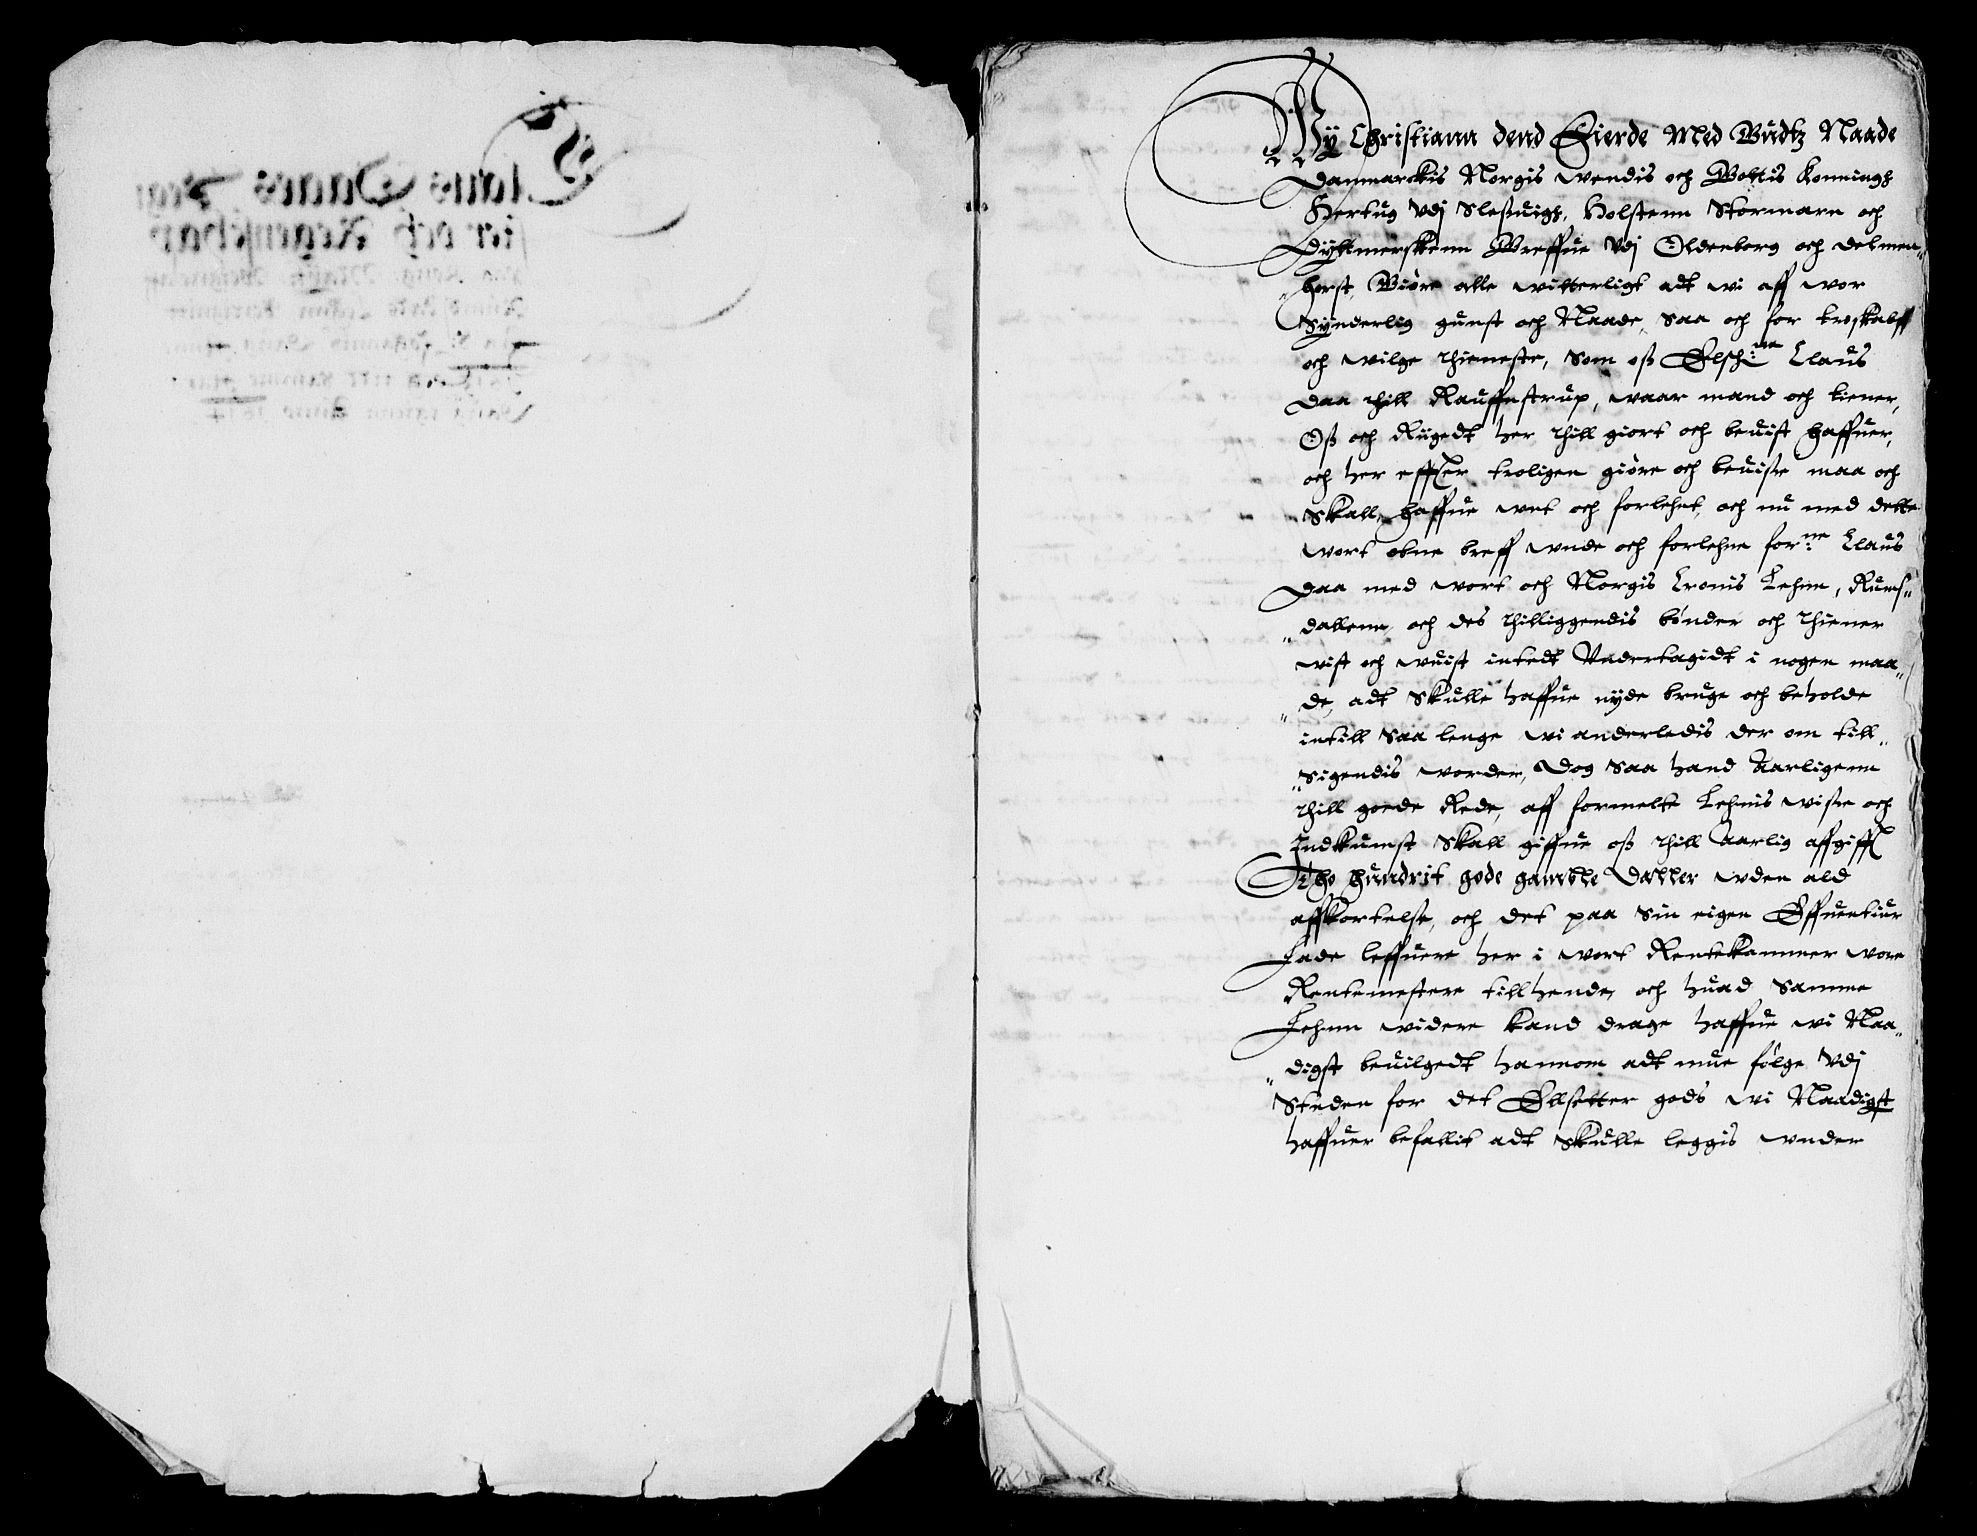 Wy Christiann dend Fierde Med Gudtz Naade
Danmarckis Norgis Wendis och Gottis Konningh
Hertug Udj Sleßuigh, Holstenn Stormarn och
Dyttmerskenn Greffue Udj Oldenborg och Delmen„
„horst, Giöre alle witterligt adt wi aff wor
Synderlig gunst och Naade, Saa och for troskabff
och wilge thieneste, Som oß Elsch:ne Claus
Daa thill Rauffnstrup, waar mand och tiener,
Oß och Rigedt her thill giort och beuist haffuer,
och her effter troligen giöre och beuise maa och
Skall, haffue unt och forlehnt, och nu med dette
wort obne breff unde och forlehne for:ne Claus
Daa med wort och Norgis Cronis Lehnn, Rums„
„dallenn och des thilliggendis bönder och thiener
wist och uuist intedt Undertagidt i nogen maa„
„de, adt Skulle haffue nyde bruge och beholde
intill Saa lenge wi anderledis der om till„
„Sigendis worder, Dog Saa hand Aarligenn
thill goede Rede, aff formelte Lehnis wise och
Indkumst Skall giffue oß thill Aarlig affgifft
Tho hundrit gode gamble Daller uden ald
affkortelse, och det paa Sin eigen Effuentiur
Lade leffuere her i wort Rentekammer wore
Rentemestere till hende, och huad Samme
Lehnn widere kand drage haffue wi Naa„
„digst beuilgedt hannom adt mue fölge Udj
Steden for det Ellsetter gods wi Naadigst
haffuer befallit adt Skulle leggis under